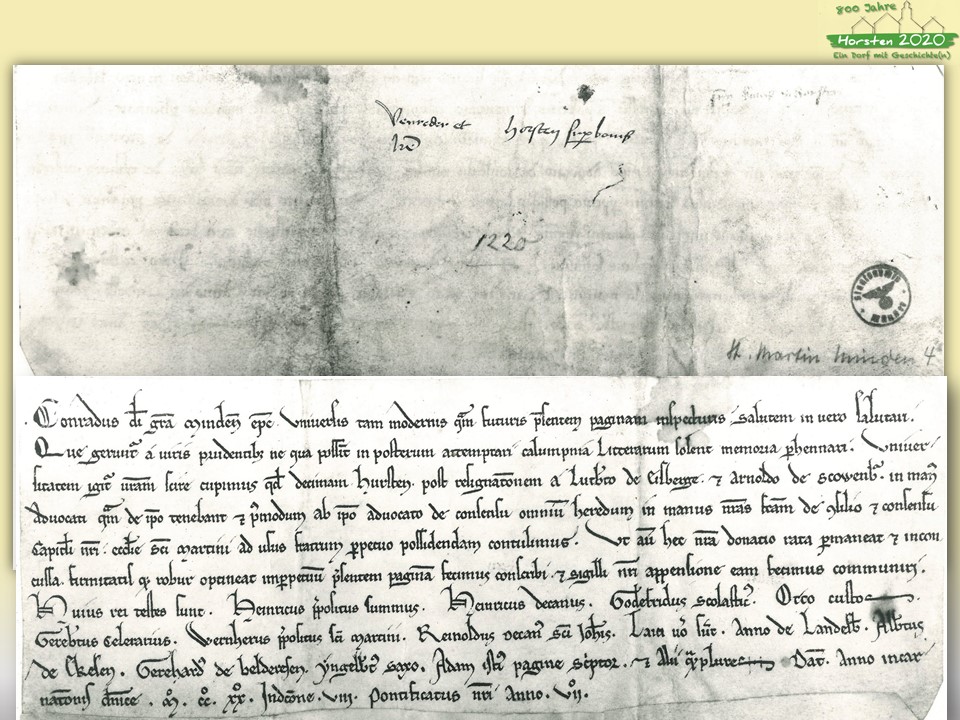 800 Jahre
Horsten 2020
Ein Dorf mit Geschichte(n)
Horsten
1220
Staatsarchiv
Münster
St. Martin Minden 4
Conradus di gra mindeñ epc Universis tam modernis qm futuris psentem paginam inspecturis Salutem in vero salutari.
Que gerunt a viris prudentibz ne qua possit in posterum attemptari calumpnia Litterarum solent memoria phennari. Univer
sitatem igit vram scire cupimus qd decimam Hursten post resignationem a Lutbto de Eisberge. & Arnoldo de Scowenb. in man
Advocati qm de ipo tenebant & pmodum ab ipo advocato de consensu omniu heredum in manus nras fcam de consilio & consensu
Capituli nri. ecclie sci Martini ad usus fratrum perpetuo possidendam contulimus. Ut au hec nra donatio rata pmaneat & incon
vulsa. firmitatis q robur optineat imppetuu psentem pagina fecimus conscribi & sigilli nri appensione eam fecimus communiri.
Huius rei testes sunt. Heinricus ppositus summus. Heinricus decanus. Godefridus scolastic. Otto custos.
Gerebtus Celerarius. Wernherus ppositus sci Martini. Reinoldus decan sci Johis. Laici uo sut. Anno de Landesb. Albtus
de Ekesen. Gerhard de beldersen. Yngelbt saxo. Adam isti pagine sciptor. & Alii qplures Dat. Anno incar
nationis dnice. M. CC. XX. Indctione. VIII. Pontificatus nri Anno. VII.